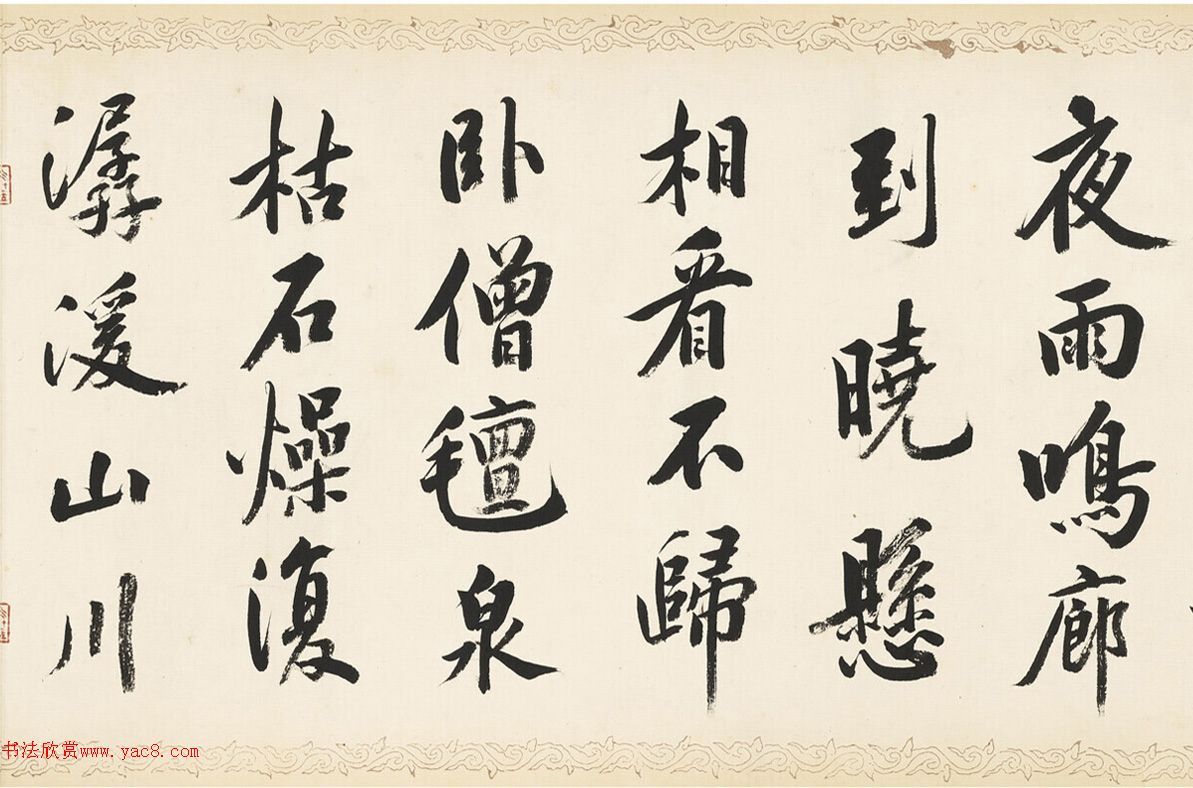 夜雨鳴廊
到曉懸
相看不歸
卧僧氊泉
枯石燥復
潺湲山川
书法欣赏www.yac8.com